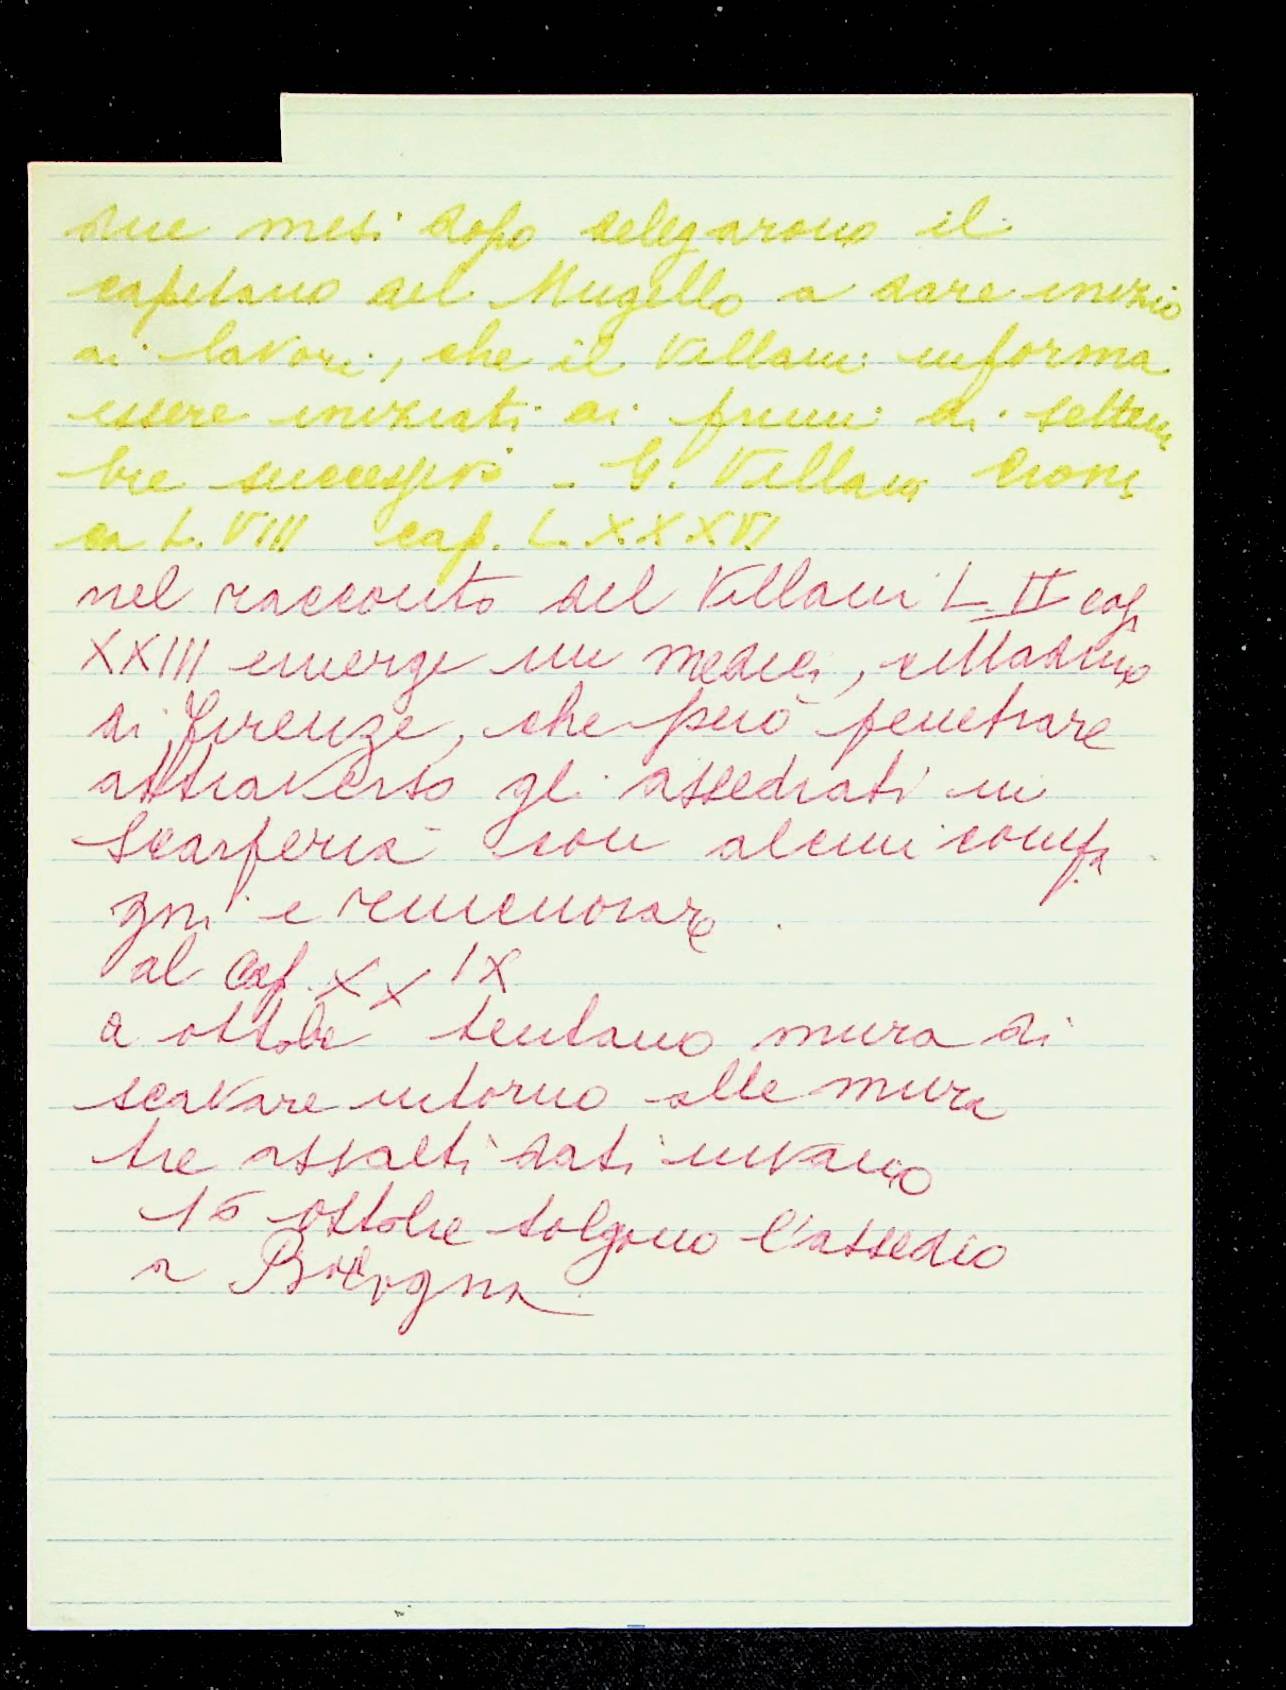 due mesi dopo delegarono il
capitano del Mugello a dare inizio
ai lavori, che il Villani informa
essere iniziati ai primi di settem
bre successivo - G. Villani Croni
ca L. VIII cap. L.XXXVI
nel racconto del Villani L. II cap
XXIII emerge un medici, cittadino
di firenze, che però penetrare
attraverso gli assediati in
Scarperia con alcuni compa
gni e
al Cap. XXIX
a ottobre tentano mura di
scavare intorno alle mura
tre assalti dati invano
16 ottobre tolgono l'assedio
a Bologna